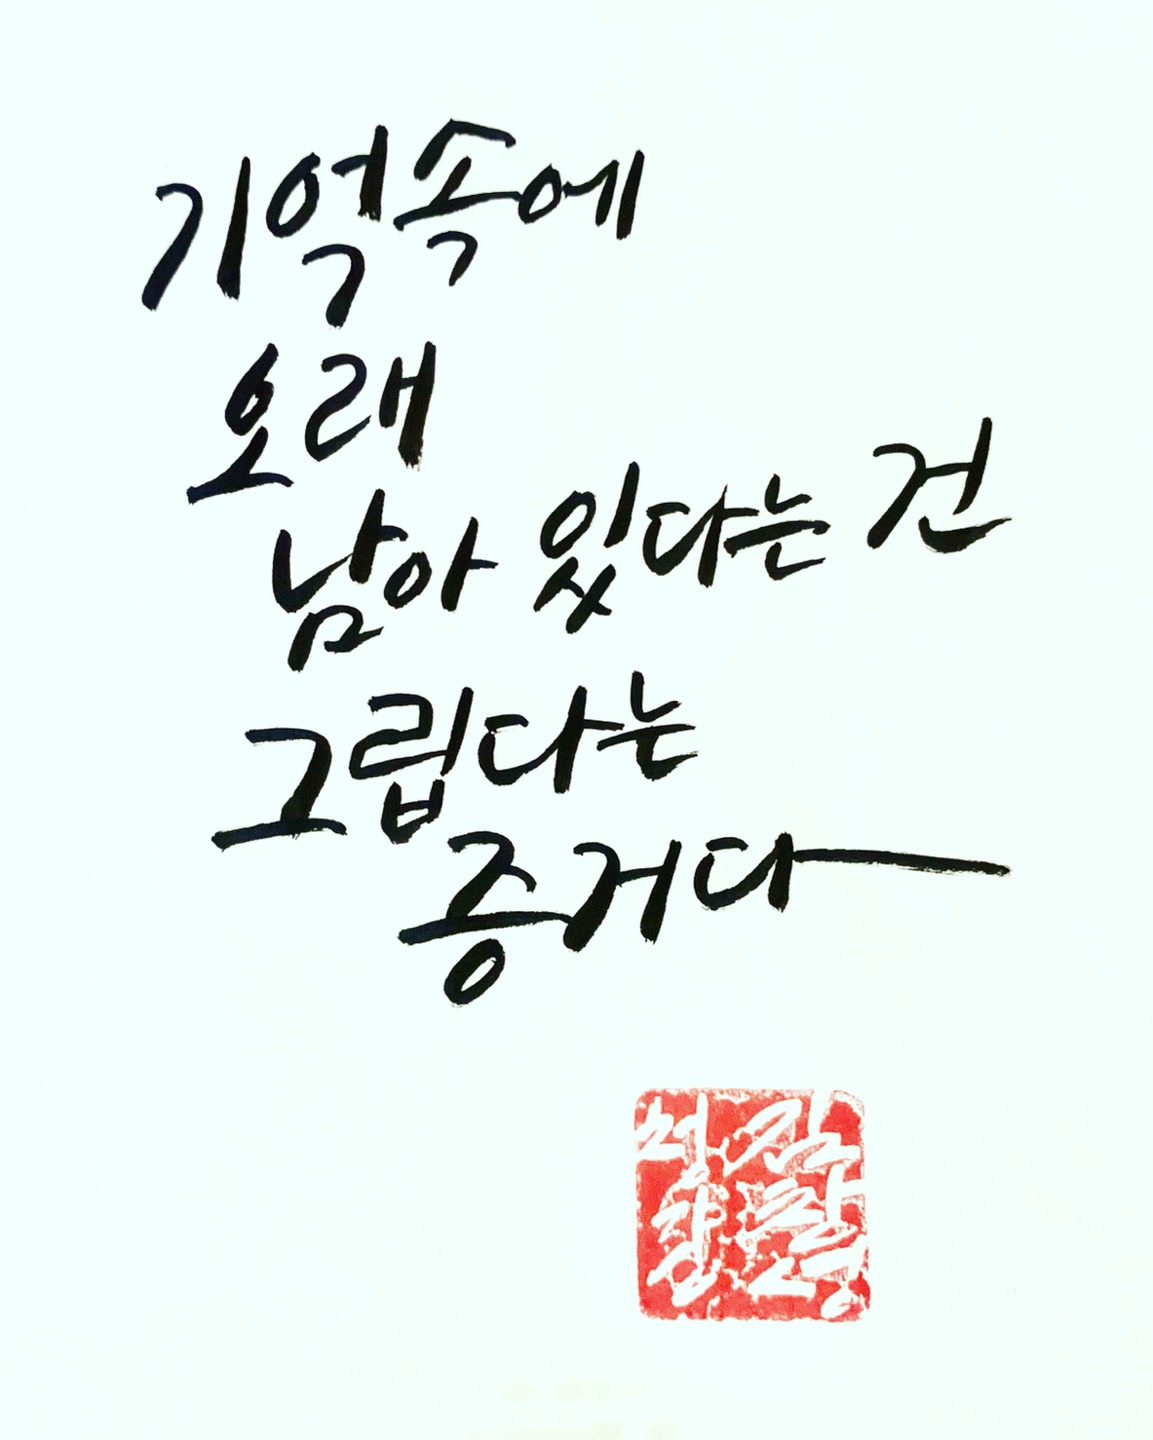 기억속에
오래
남아 있다는 건
그립다는
증거다